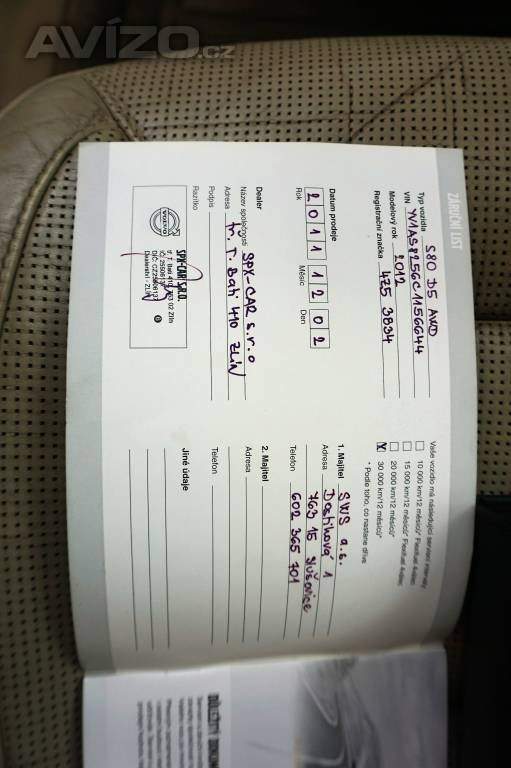 AVÍZO.cz
ZÁRUČNÍ LIST
Typ vozidla S80 D5 AWD
VIN YV1AS8256C1156644
Modelový rok 2012
Registrační značka 4Z5 3834
Datum prodeje
2011 12 02
Rok Měsíc Den
Dealer
Název společnosti SPX-CAR s.r.o
Adresa tř. T. Bati 410 ZLÍN
Podpis
Razítko
VOLVO
SPX-CAR s.r.o.
tř. T. Bati 410, 763 02 Zlín
Dealerství - ZLÍN
Vaše vozidlo má následující servisní intervaly
10 000 km/12 měsíců* Flexifuel 4válec
15 000 km/12 měsíců* Flexifuel 5válec
20 000 km/12 měsíců*
30 000 km/12 měsíců*
* Podle toho, co nastane dříve
1. Majitel SWS a.s.
Adresa Dostihová 1
763 15 Slušovice
Telefon 602 365 701
2. Majitel
Adresa
Telefon
Jiné údaje